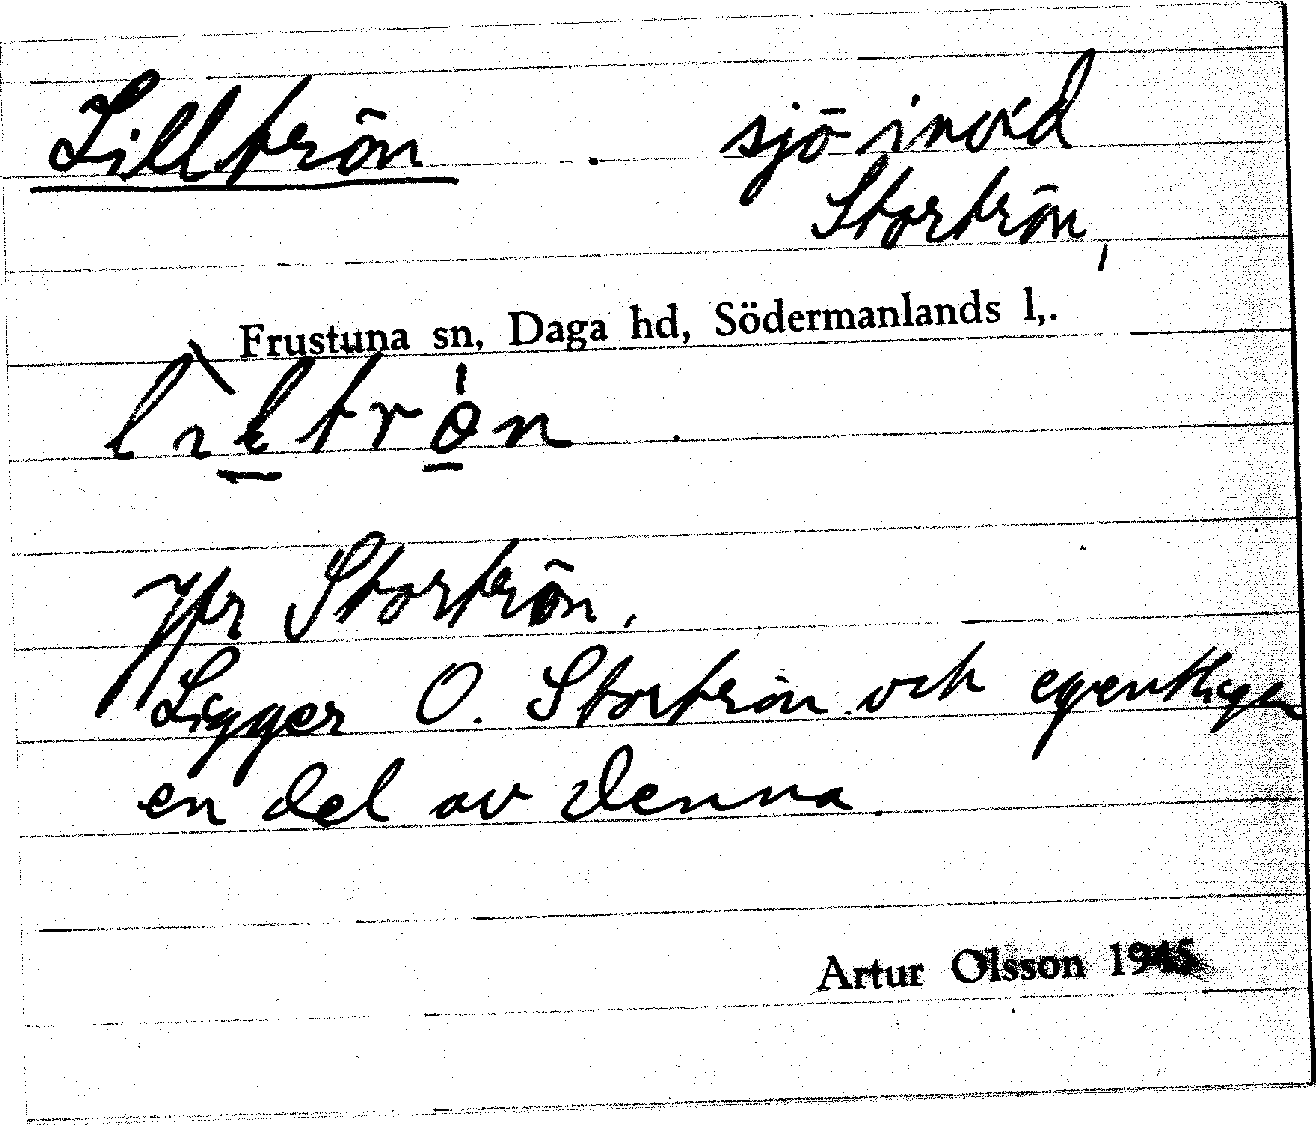 Lilltrön . sjö invid
Stortrön,
Frustuna sn, Daga hd, Södermanlands l,.
Jfr Stortrön.
Ligger O. Stortrön och egentligen
en del av denna.
Artur Olsson 1945